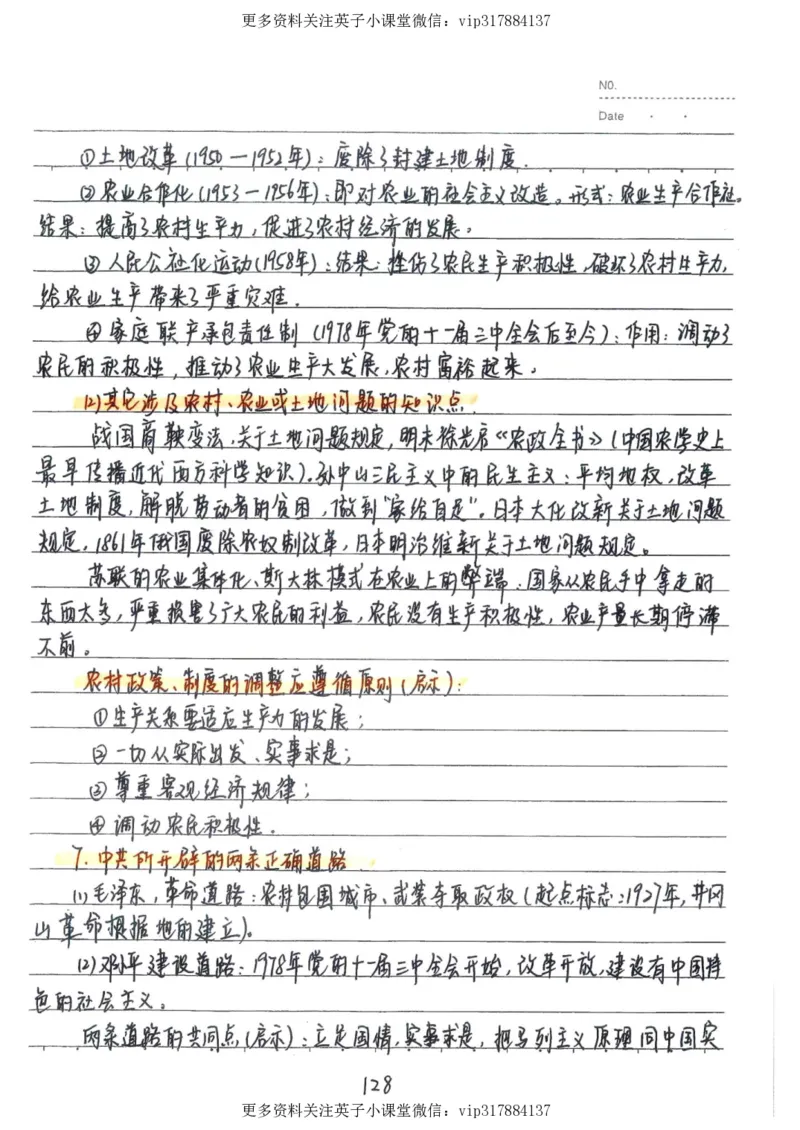 更多资料关注英子小课堂微信：vip317884137
NO.
Date
①土地改革(1950—1952年)：废除了封建土地制度.
②农业合作化(1953—1956年)：即对农业的社会主义改造。形式：农业生产合作社。
结果：提高了农村生产力，促进了农村经济的发展。
③人民公社化运动(1958年)：结果：挫伤了农民生产积极性，破坏了农村生产力，
给农业生产带来了严重灾难.
④家庭联产承包责任制（1978年党的十一届三中全会后至今）：作用：调动了
农民的积极性，推动了农业生产大发展，农村富裕起来。
(2)其它涉及农村、农业或土地问题的知识点.
战国商鞅变法，关于土地问题规定，明末徐光启《农政全书》（中国农学史上
最早传播近代西方科学知识）。孙中山三民主义中的民生主义：平均地权，改革
土地制度，解脱劳动者的贫困，做到“家给自足”。日本大化改新关于土地问题
规定，1861年俄国废除农奴制改革，日本明治维新关于土地问题规定。
苏联的农业集体化、斯大林模式在农业上的弊端：国家从农民手中拿走的
东西太多，严重损害了广大农民的利益，农民没有生产积极性，农业产量长期停滞
不前。
农村政策、制度的调整应遵循原则（启示）：
①生产关系要适应生产力的发展；
②一切从实际出发、实事求是；
③尊重客观经济规律；
④调动农民积极性.
7. 中共所开辟的两条正确道路
(1)毛泽东，革命道路：农村包围城市、武装夺取政权（起点标志：1927年，井冈
山革命根据地的建立）。
(2)邓小平建设道路：1978年党的十一届三中全会开始，改革开放，建设有中国特
色的社会主义。
两条道路的共同点（启示）：立足国情，实事求是，把马列主义原理同中国实
128
更多资料关注英子小课堂微信：vip317884137